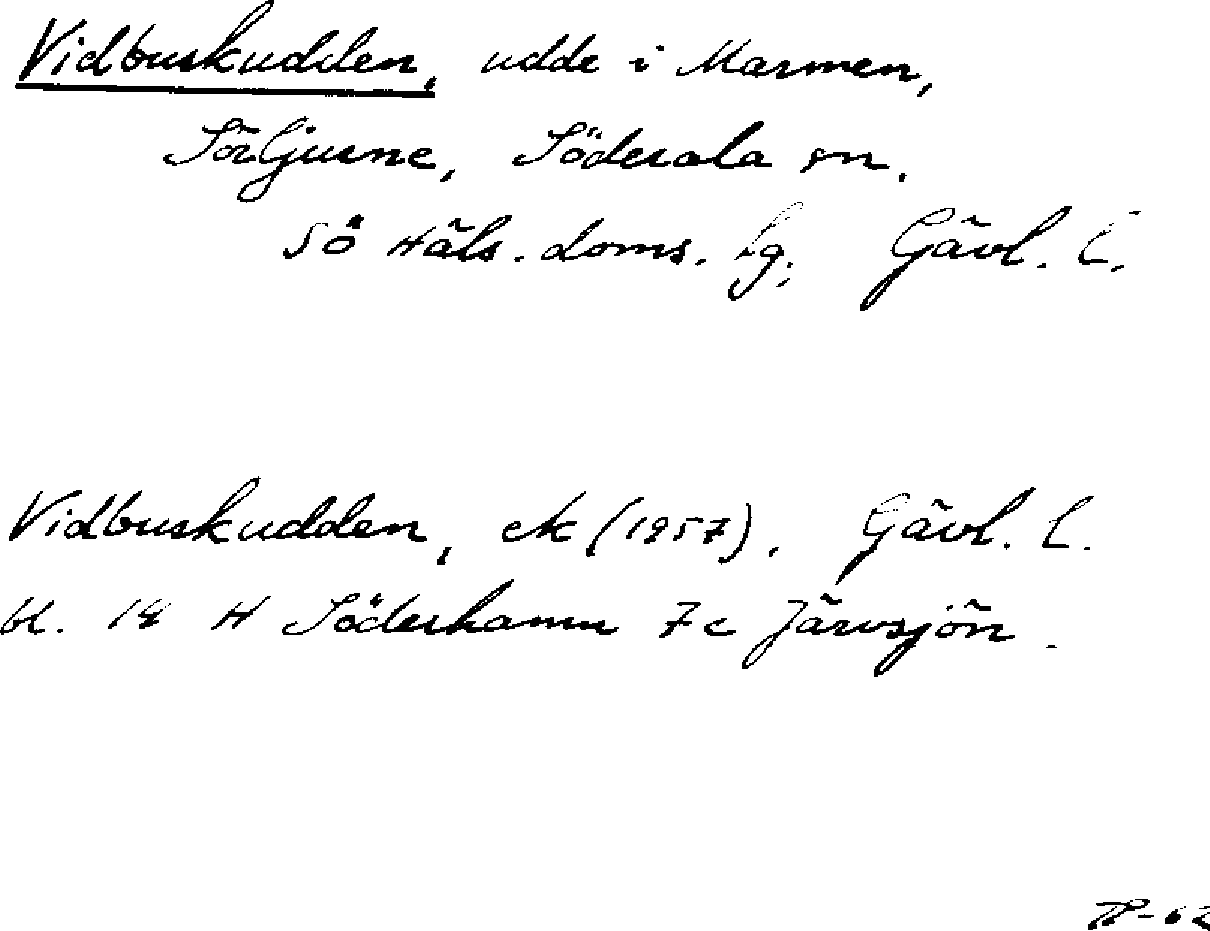 Vidbuskudden, udde i Marmen,
SörLjusne, Söderala sn.
SÖ Häls. doms. Lg, Gävl. l.
Vidbuskudden, ek (1957). Gävl. l.
bl. 14 H Söderhamn 7c Järvsjön.
-62